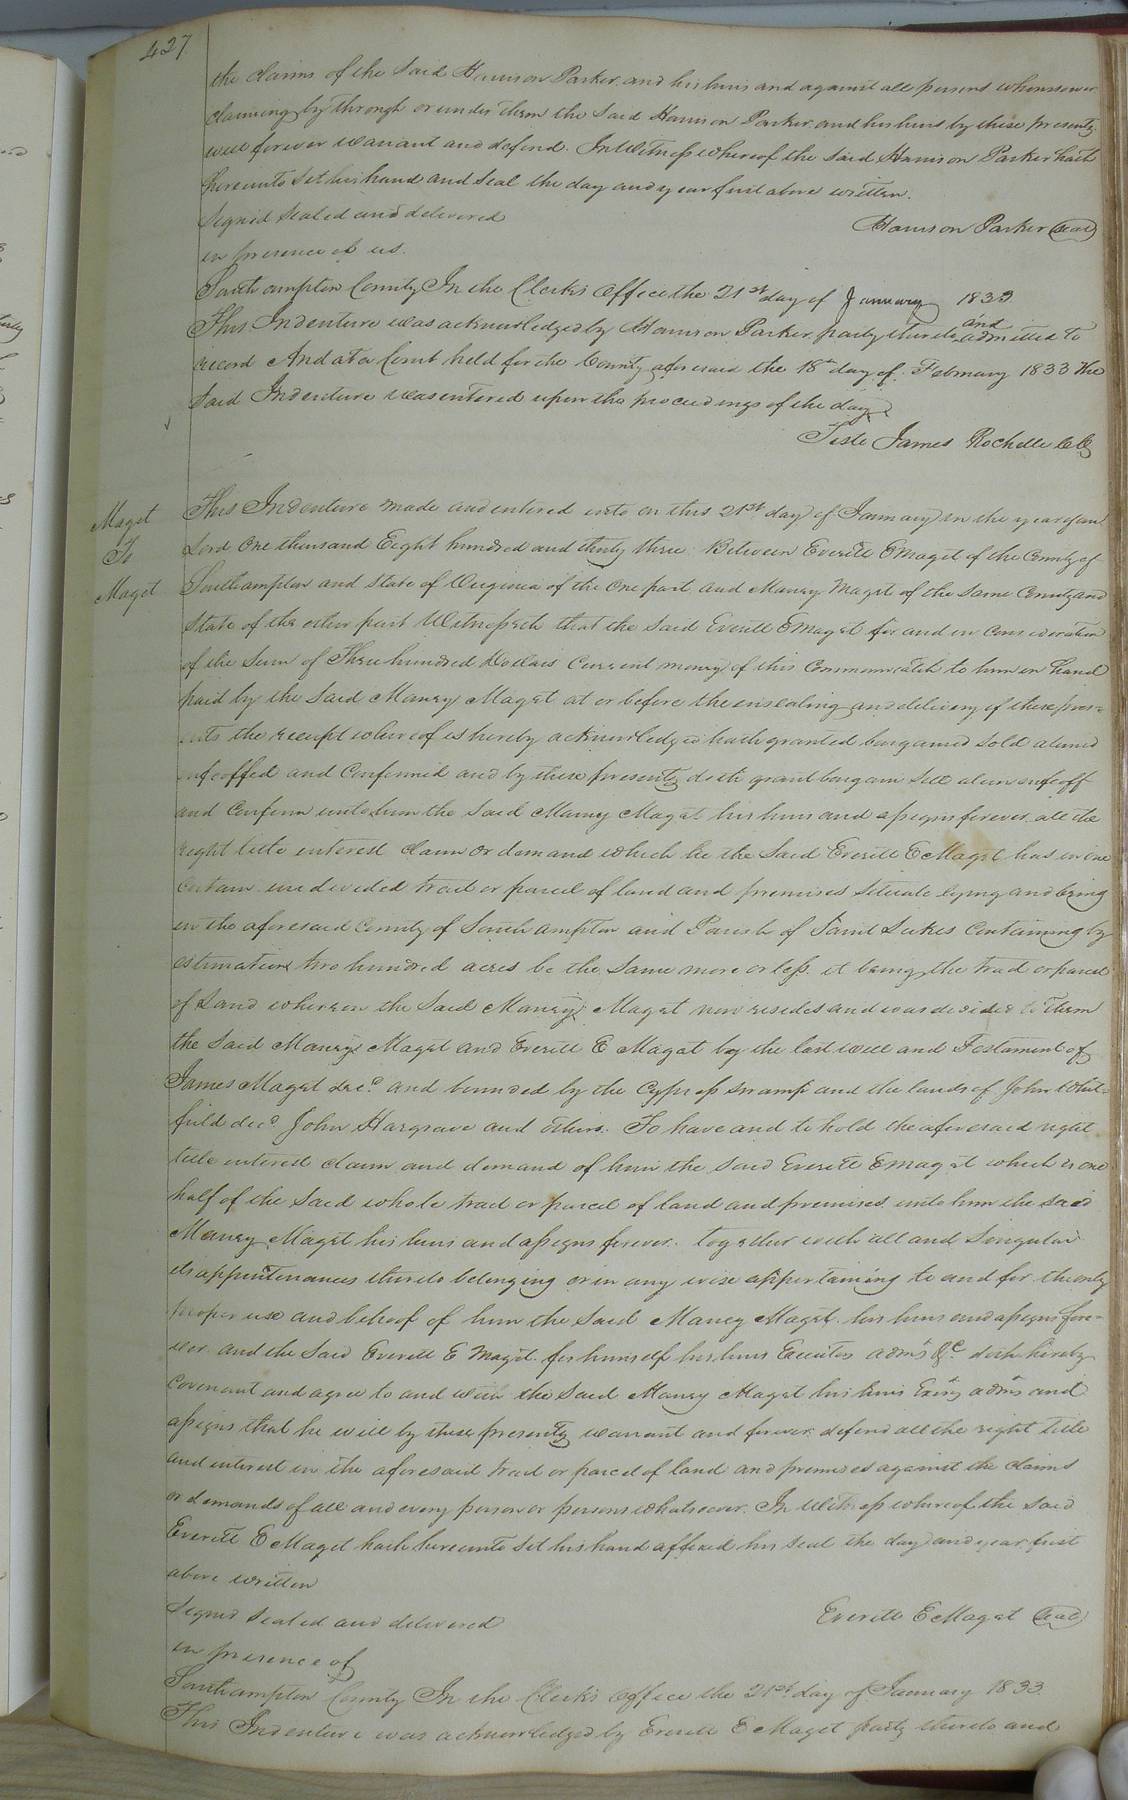 427
the claims of the Said Harrison Parker and his heirs and against all persons whomsoever
claiming by through or under them the Said Harrison Parker and his heirs by these presents
will forever warrant and defend. In Witness whereof the Said Harrison Parker hath
hereunto Set his hand and Seal the day and year first above written.
Signed Sealed and delivered
Harrison Parker (Seal)
in presence of us.
Southampton County In the Clerk's Office the 21st day of January 1833.
This Indenture was acknowledged by Harrison Parker party thereto and admitted to
record And at a Court held for the County aforesaid the 18th day of February 1833 The
Said Indenture was entered upon the proceedings of the day.
Teste James Rochelle
Maget
To
Maget
This Indenture made and entered into on this 21st day of January in the year of our
Lord One thousand Eight hundred and thirty three Between Everitt E Maget of the County of
Southampton and State of Virginia of the One part and Maney Maget of the Same County and
State of the other part Witnesseth that the Said Everitt E Maget for and in Consideration
of the Sum of Three hundred Dollars Current money of this Commonwealth to him in hand
paid by the Said Maney Maget at or before the ensealing and delivery of these pres=
ents the receipt whereof is hereby acknowledged hath granted bargained Sold aliened
enfeoffed and Confirmed and by these presents doth grant bargain Sell alien enfeoff
and Confirm unto him the Said Maney Maget his heirs and assigns forever all the
right title interest claim or demand which he the Said Everitt E Maget has in one
Certain undivided tract or parcel of land and premises Situate lying and being
in the aforesaid County of Southampton and Parish of Saint Lukes Containing by
estimation two hundred acres be the Same more or less it being the tract or parcel
of Land whereon the Said Maney Maget now resides and was devided to Them
the Said Maney Maget and Everitt E Maget by the last will and Testament of
James Maget decd and bounded by the Cypress Swamp and the lands of John Whit=
field decd John Hargrave and others. To have and to hold the aforesaid right
title interest claim and demand of him the Said Everitt E Maget which is one
half of the Said whole tract or parcel of land and premises unto him the Said
Maney Maget his heirs and assigns forever. together with all and Singular
its appurtenances thereto belonging or in any wise appertaining to and for the only
proper use and behoof of him the Said Maney Maget his heirs and assigns fore=
ver and the Said Everitt E Maget for himself his heirs Executors adms &c. doth hereby
Covenant and agree to and with the Said Maney Maget his heirs Exors adms and
assigns that he will by these presents warrant and forever defend all the right title
and interest in the aforesaid tract or parcel of land and premises against the claims
or demands of all and every person or persons whatsoever. In Witness whereof the Said
Everitt E Maget hath hereunto Set his hand affixed his Seal the day and year first
above written
Signed Sealed and delivered
Everitt E Maget (Seal)
in presence of
Southampton County In the Clerk's Office the 21st day of January 1833.
This Indenture was acknowledged by Everitt E Maget party thereto and